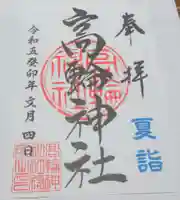 奉拝
夏詣
高輪神社
令和五癸卯年文月四日